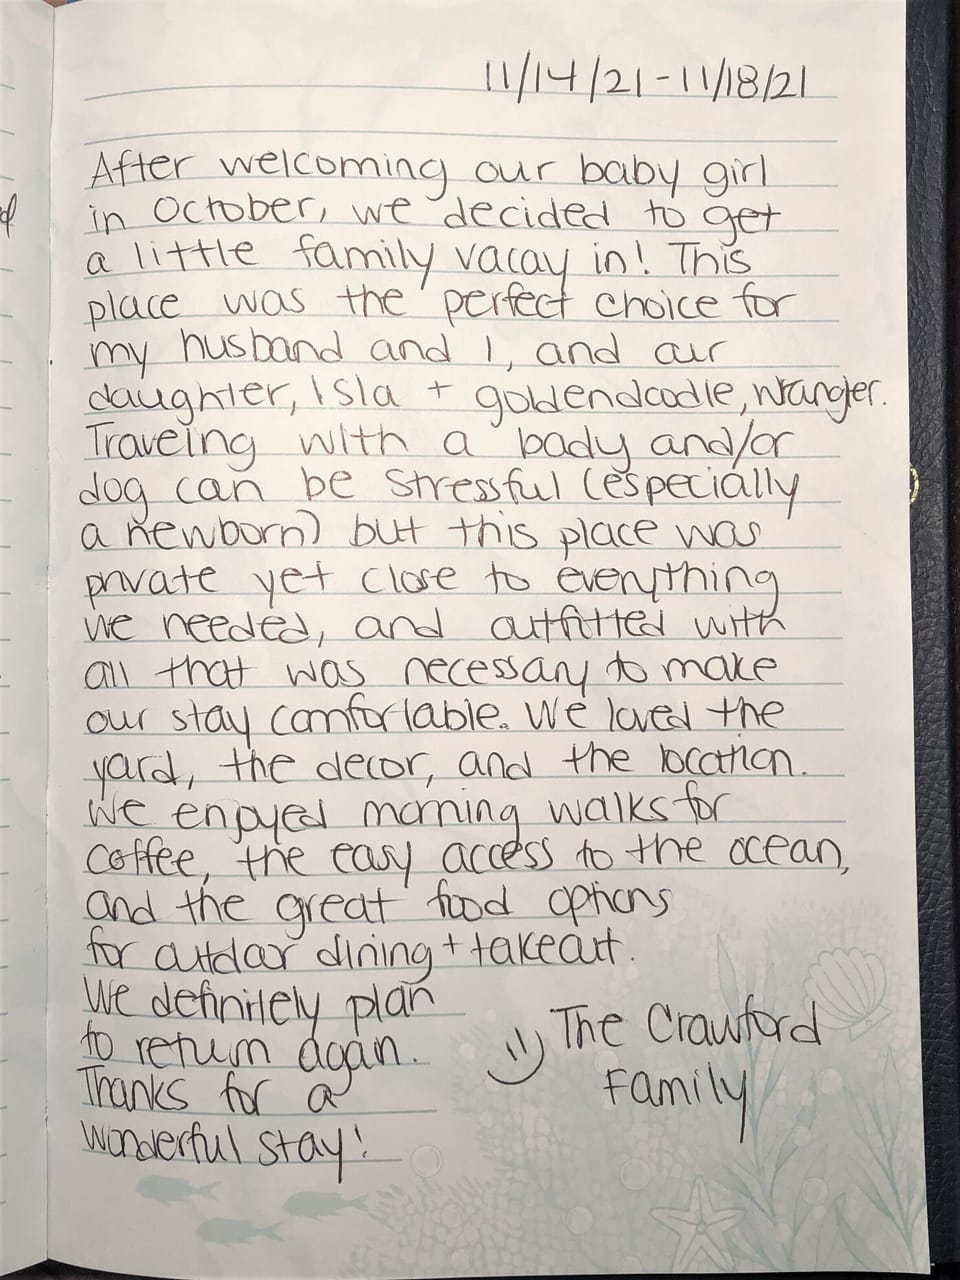 11/14/21 - 11/18/21
After welcoming our baby girl
in October, we decided to get
a little family vacay in! This
place was the perfect choice for
my husband and I, and our
daughter, Isla + goldendoodle, Wrangler.
Traveing with a bady and/or
dog can be stressful (especially
a newborn) but this place was
private yet close to everything
we needed, and outfitted with
all that was necessary to make
our stay comfortable. We loved the
yard, the decor, and the location.
We enjoyed morning walks for
coffee, the easy access to the ocean,
and the great food options
for outdoor dining + takeout.
We definitely plan
to return again.
Thanks for a
wonderful stay!
The Crawford
Family